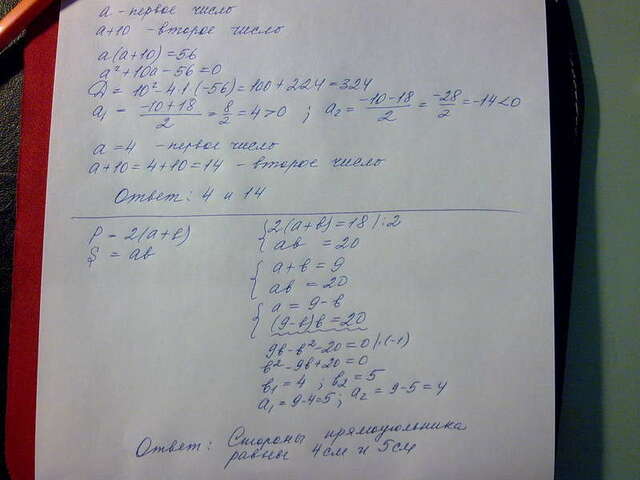 a - первое число
a+10 - второе число
a(a+10)=56
a²+10a-56=0
D = 10²-4·1·(-56)=100+224=324
a₁ = (-10+18)/2 = 8/2 = 4>0 ; a₂ = (-10-18)/2 = -28/2 = -14<0
a = 4 - первое число
a+10=4+10=14 - второе число
Ответ: 4 и 14
P = 2(a+b)
S = ab
{2(a+b)=18 |:2
{ab = 20
{a+b = 9
{ab = 20
{a = 9-b
{(9-b)b=20
9b-b²-20=0 |·(-1)
b²-9b+20=0
b₁=4 ; b₂=5
a₁=9-4=5; a₂=9-5=4
Ответ: Стороны прямоугольника
равны 4см и 5см